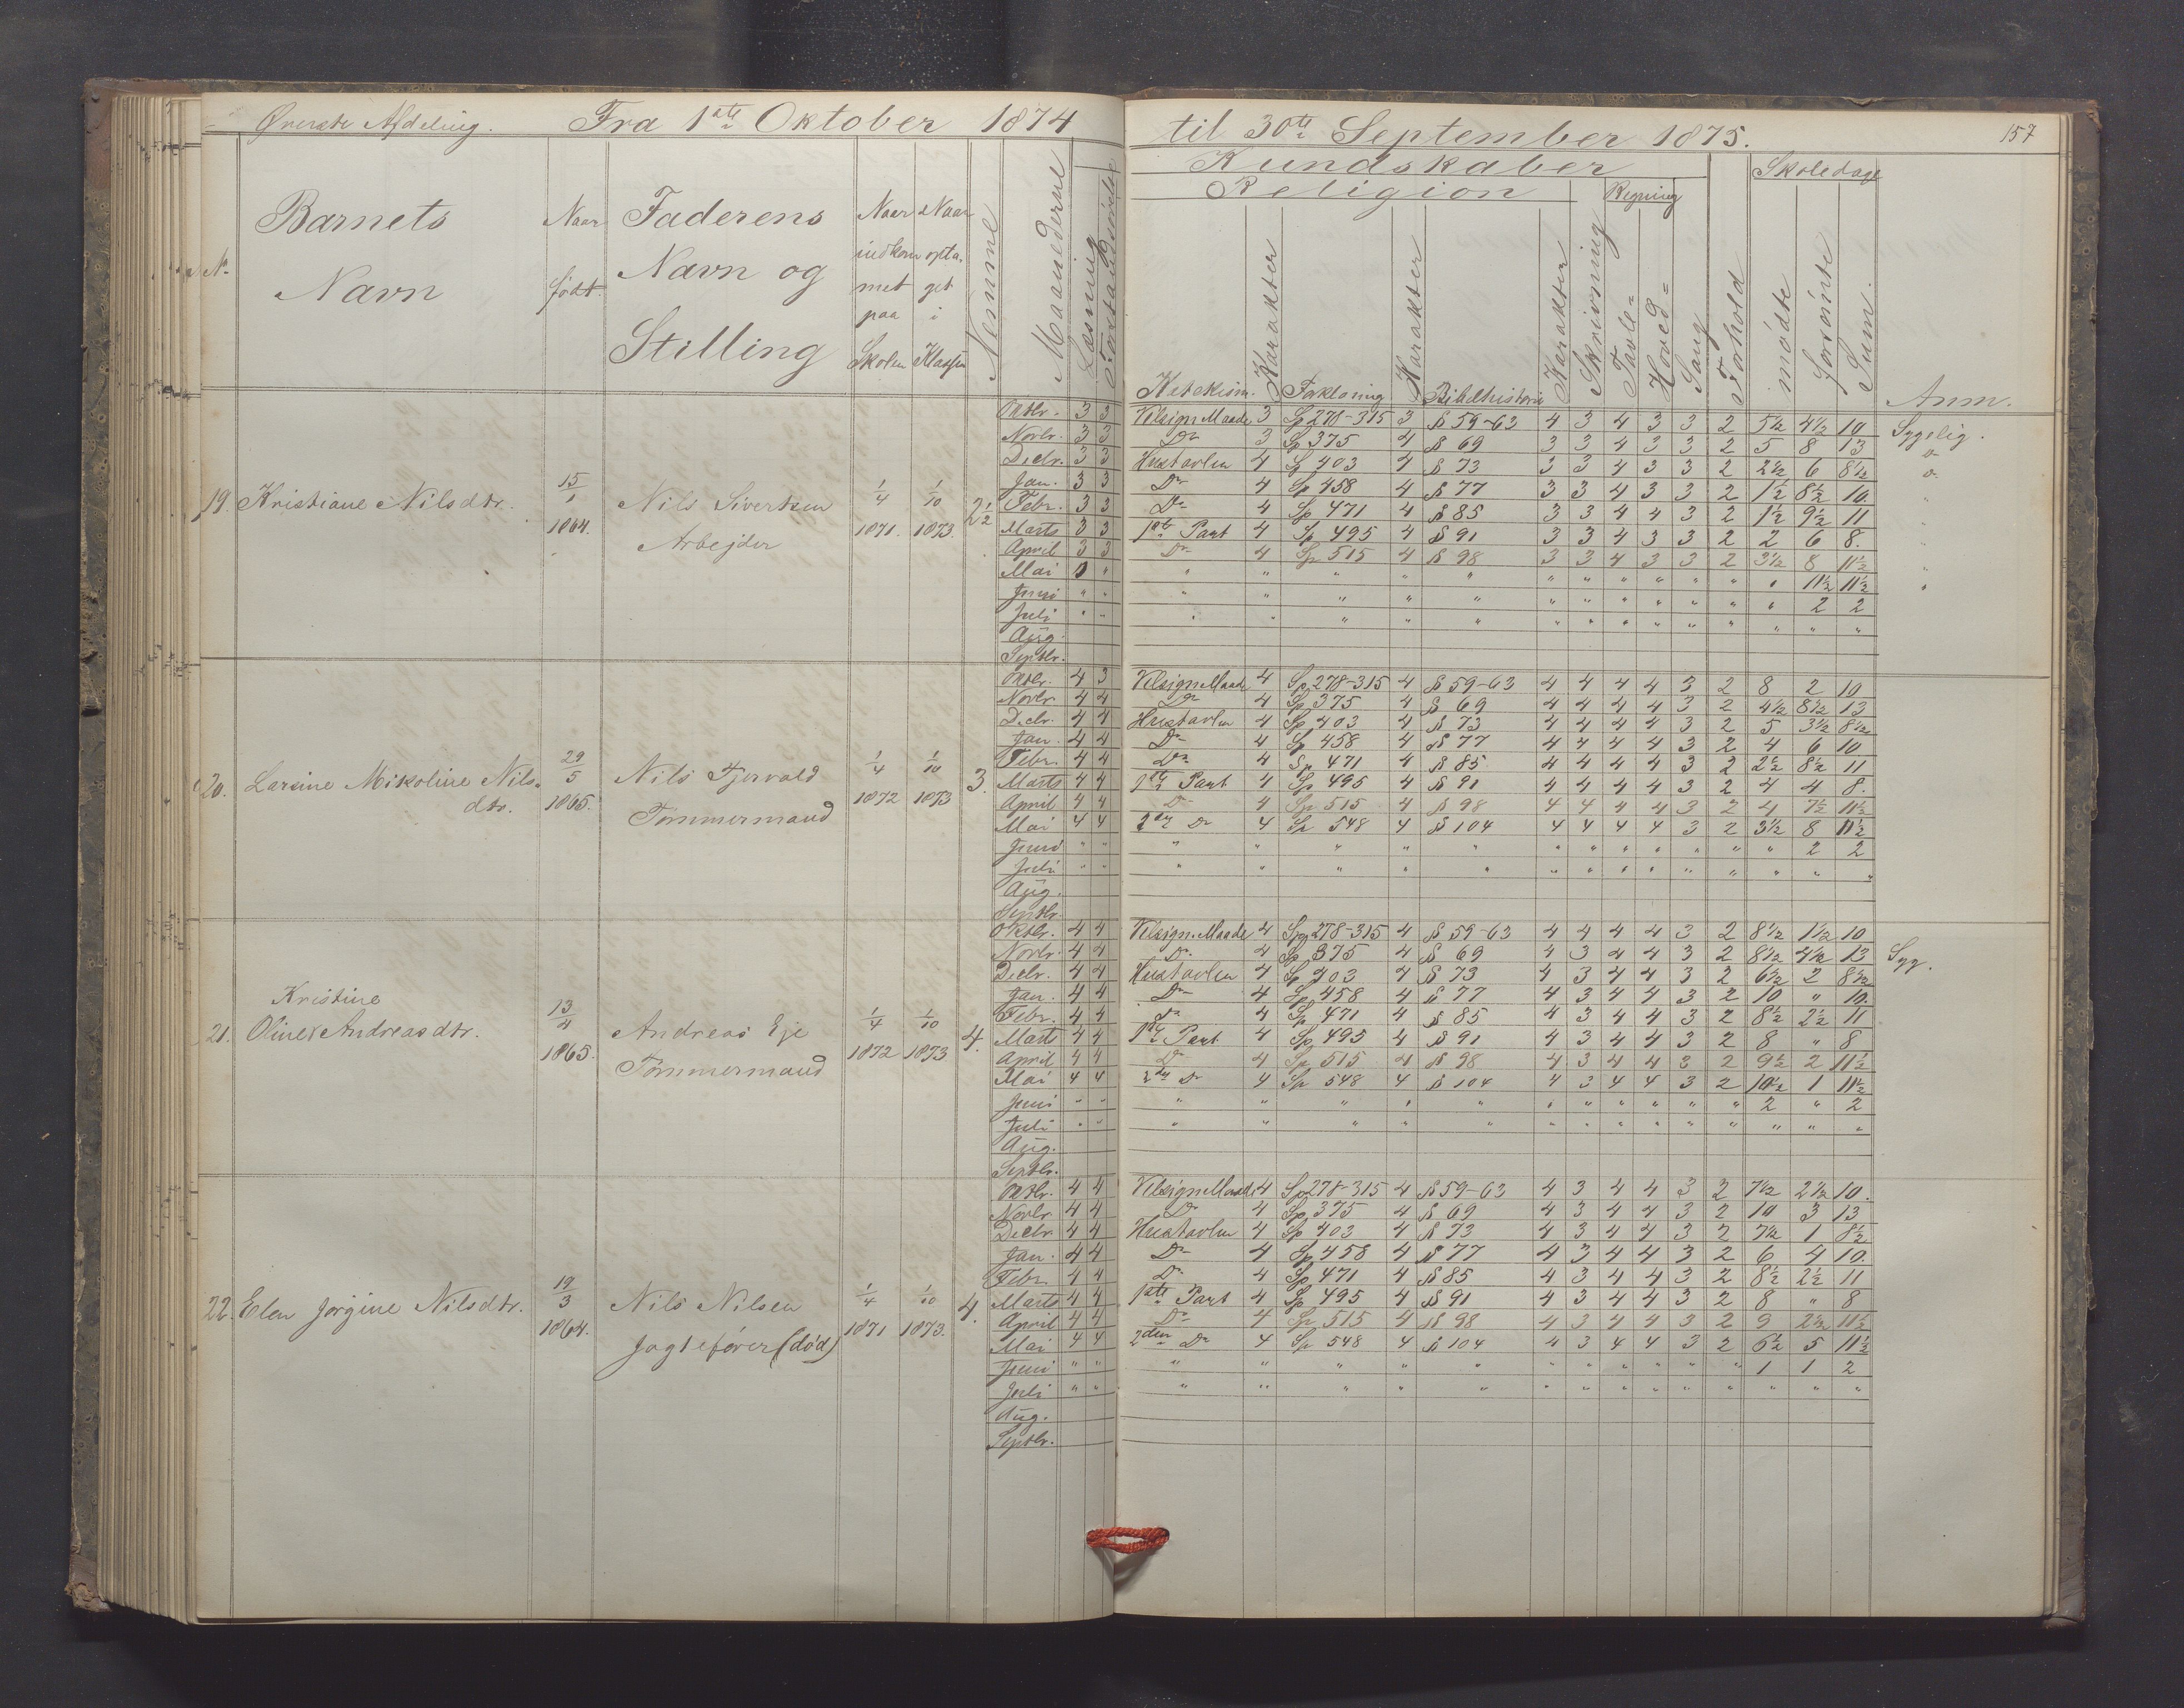 Øverste Afdeling. Fra 1ste Oktober 1874 til 30te September 1875. 157
Kundskaber
Religion Regning Skoledage
No. Barnets Navn Naar født. Faderens Navn og Stilling Naar indkommet paa Skolen Naar optaget i Klassen Nemme Maanederne Læsning Forstandsøvelse Katekism. Karakter Forklaring Karakter Bibelhistorie Karakter Skrivning Tavle= Hoved= Sang Forhold mødte forsømte Sum. Anm.
19. Kristiane Nilsdtr. 15/1 1864. Nils Sivertsen Arbejder 1/4 1871. 1/10 1873. 2 1/2
Oktbr. 3 3 Velsign. Maade 3 Sp 278-315 3 § 59-63 4 3 4 3 3 2 5 1/2 4 1/2 10 Sygelig.
Novbr. 3 3 Do 3 Sp 375 4 § 69 3 3 4 3 3 2 5 8 13
Decbr. 3 3 Hustavlen 4 Sp 403 4 § 73 3 3 4 3 3 2 2 1/2 6 8 1/2
Jan. 3 3 Do 4 Sp 458 4 § 77 3 3 4 3 3 2 1 1/2 8 1/2 10.
Febr. 3 3 Do 4 Sp 471 4 § 85 3 3 4 4 3 2 1 1/2 9 1/2 11
Marts 3 3 1ste Part 4 Sp 495 4 § 91 3 3 4 3 3 2 2 6 8.
April 3 3 Do 4 Sp 515 4 § 98 3 3 4 3 3 2 3 1/2 8 11 1/2
Mai " " " " " " " " " " " " " 11 1/2 11 1/2
Juni " " " " " " " " " " " " " " 2 2
Juli " " " " " " " " " " " " " " " "
Aug.
Septbr.
20. Larsine Nikoline Nilsdtr. 29/5 1865. Nils Tjervald Tømmermand 1/4 1872 1/10 1873 3.
Oktbr. 4 3 Velsign. Maade 4 Sp 278-315 4 § 59-63 4 4 4 4 3 2 8 2 10
Novbr. 4 4 Do 4 Sp 375 4 § 69 4 4 4 4 3 2 4 1/2 8 1/2 13
Decbr. 4 4 Hustavlen 4 Sp 403 4 § 73 4 4 4 4 3 2 5 3 1/2 8 1/2
Jan. 4 4 Do 4 Sp 458 4 § 77 4 4 4 4 3 2 4 6 10
Febr. 4 4 Do 4 Sp 471 4 § 85 4 4 4 4 3 2 2 1/2 8 1/2 11
Marts 4 4 1ste Part 4 Sp 495 4 § 91 4 4 4 4 3 2 4 4 8.
April 4 4 Do 4 Sp 515 4 § 98 4 4 4 4 3 2 4 7 1/2 11 1/2
Mai 4 4 2den Do 4 Sp 548 4 § 104 4 4 4 4 3 2 3 1/2 8 11 1/2
Juni " " " " " " " " " " " " " " 2 2
Juli " " " " " " " " " " " " " " " "
Aug.
Septbr.
21. Kristine Oline Andreasdtr. 13/4 1865. Andreas Eje Tømmermand 1/4 1872 1/10 1873 4.
Oktbr. 4 4 Velsign. Maade 4 Sp 278-315 4 § 59-63 4 4 4 4 3 2 8 1/2 1 1/2 10
Novbr. 4 4 Do 4 Sp 375 4 § 69 4 3 4 4 3 2 8 1/2 4 1/2 13 Syg.
Decbr. 4 4 Hustavlen 4 Sp 403 4 § 73 4 3 4 4 3 2 6 1/2 2 8 1/2
Jan. 4 4 Do 4 Sp 458 4 § 77 4 3 4 4 3 2 10 " 10.
Febr. 4 4 Do 4 Sp 471 4 § 85 4 3 4 4 3 2 8 1/2 2 1/2 11
Marts 4 4 1ste Part 4 Sp 495 4 § 91 4 3 4 4 3 2 8 " 8
April 4 4 Do 4 Sp 515 4 § 98 4 3 4 4 3 2 9 1/2 2 11 1/2
Mai 4 4 2den Do 4 Sp 548 4 § 104 4 3 4 4 3 2 10 1/2 1 11 1/2
Juni " " " " " " " " " " " " " 2 " 2
Juli " " " " " " " " " " " " " " " "
Aug.
Septbr.
22. Elen Jørgine Nilsdtr. 19/3 1864. Nils Nilsen Jagtefører (død) 1/4 1871 1/10 1873. 4.
Oktbr. 4 4 Velsign. Maade 4 Sp 278-315 4 § 59-63 4 3 4 4 3 2 7 1/2 2 1/2 10.
Novbr. 4 4 Do 4 Sp 375 4 § 69 4 3 4 4 3 2 10 3 13
Decbr. 4 4 Hustavlen 4 Sp 403 4 § 73 4 3 4 4 3 2 7 1/2 1 8 1/2
Jan. 4 4 Do 4 Sp 458 4 § 77 4 3 4 4 3 2 6 4 10.
Febr. 4 4 Do 4 Sp 471 4 § 85 4 3 4 4 3 2 8 1/2 2 1/2 11
Marts 4 4 1ste Part 4 Sp 495 4 § 91 4 3 4 4 3 2 8 " 8
April 4 4 Do 4 Sp 515 4 § 98 4 3 4 4 3 2 9 2 1/2 11 1/2
Mai 4 4 2den Do 4 Sp 548 4 § 104 4 3 4 4 3 2 6 1/2 5 11 1/2
Juni " " " " " " " " " " " " " 1 1 2
Juli " " " " " " " " " " " " " " " "
Aug.
Septbr.